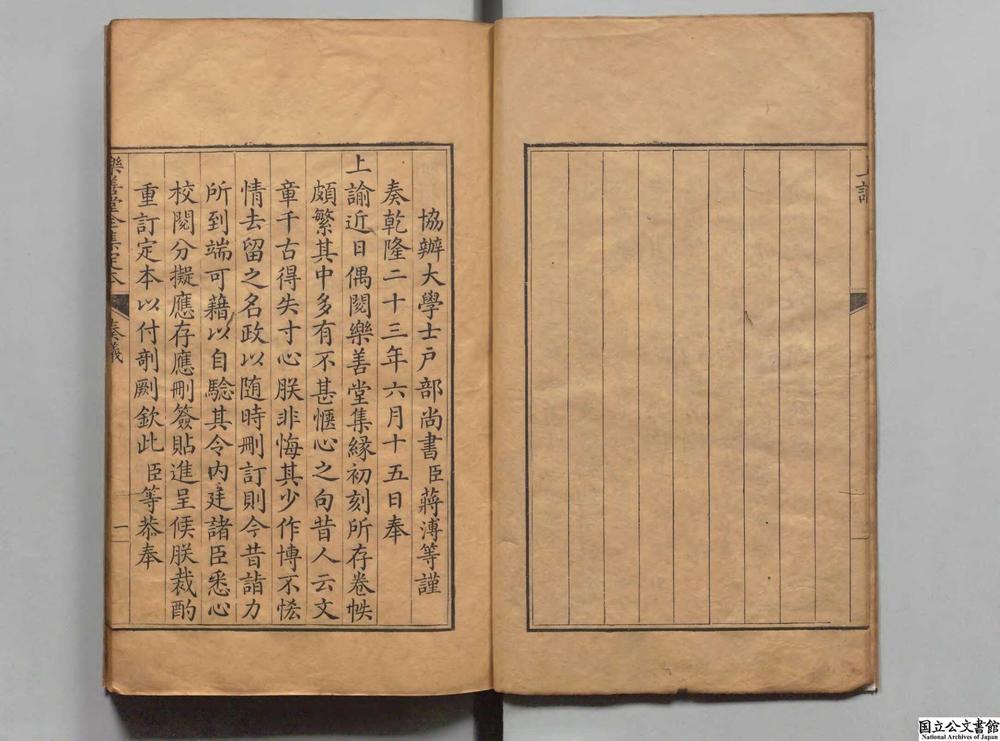 上諭
協辦大學士戸部尚書臣蔣溥等謹
奏乾隆二十三年六月十五日奉
上諭近日偶閱樂善堂集縁初刻所存卷帙
頗繁其中多有不甚愜心之句昔人云文
章千古得失寸心朕非悔其少作博不恡
情去留之名政以随時刪訂則今昔詣力
所到端可藉以自驗其令内廷諸臣悉心
校閱分擬應存應刪簽貼進呈候朕裁酌
重訂定本以付剞劂欽此臣等恭奉
樂善堂全集定本 奏議 一
国立公文書館
National Archives of Japan